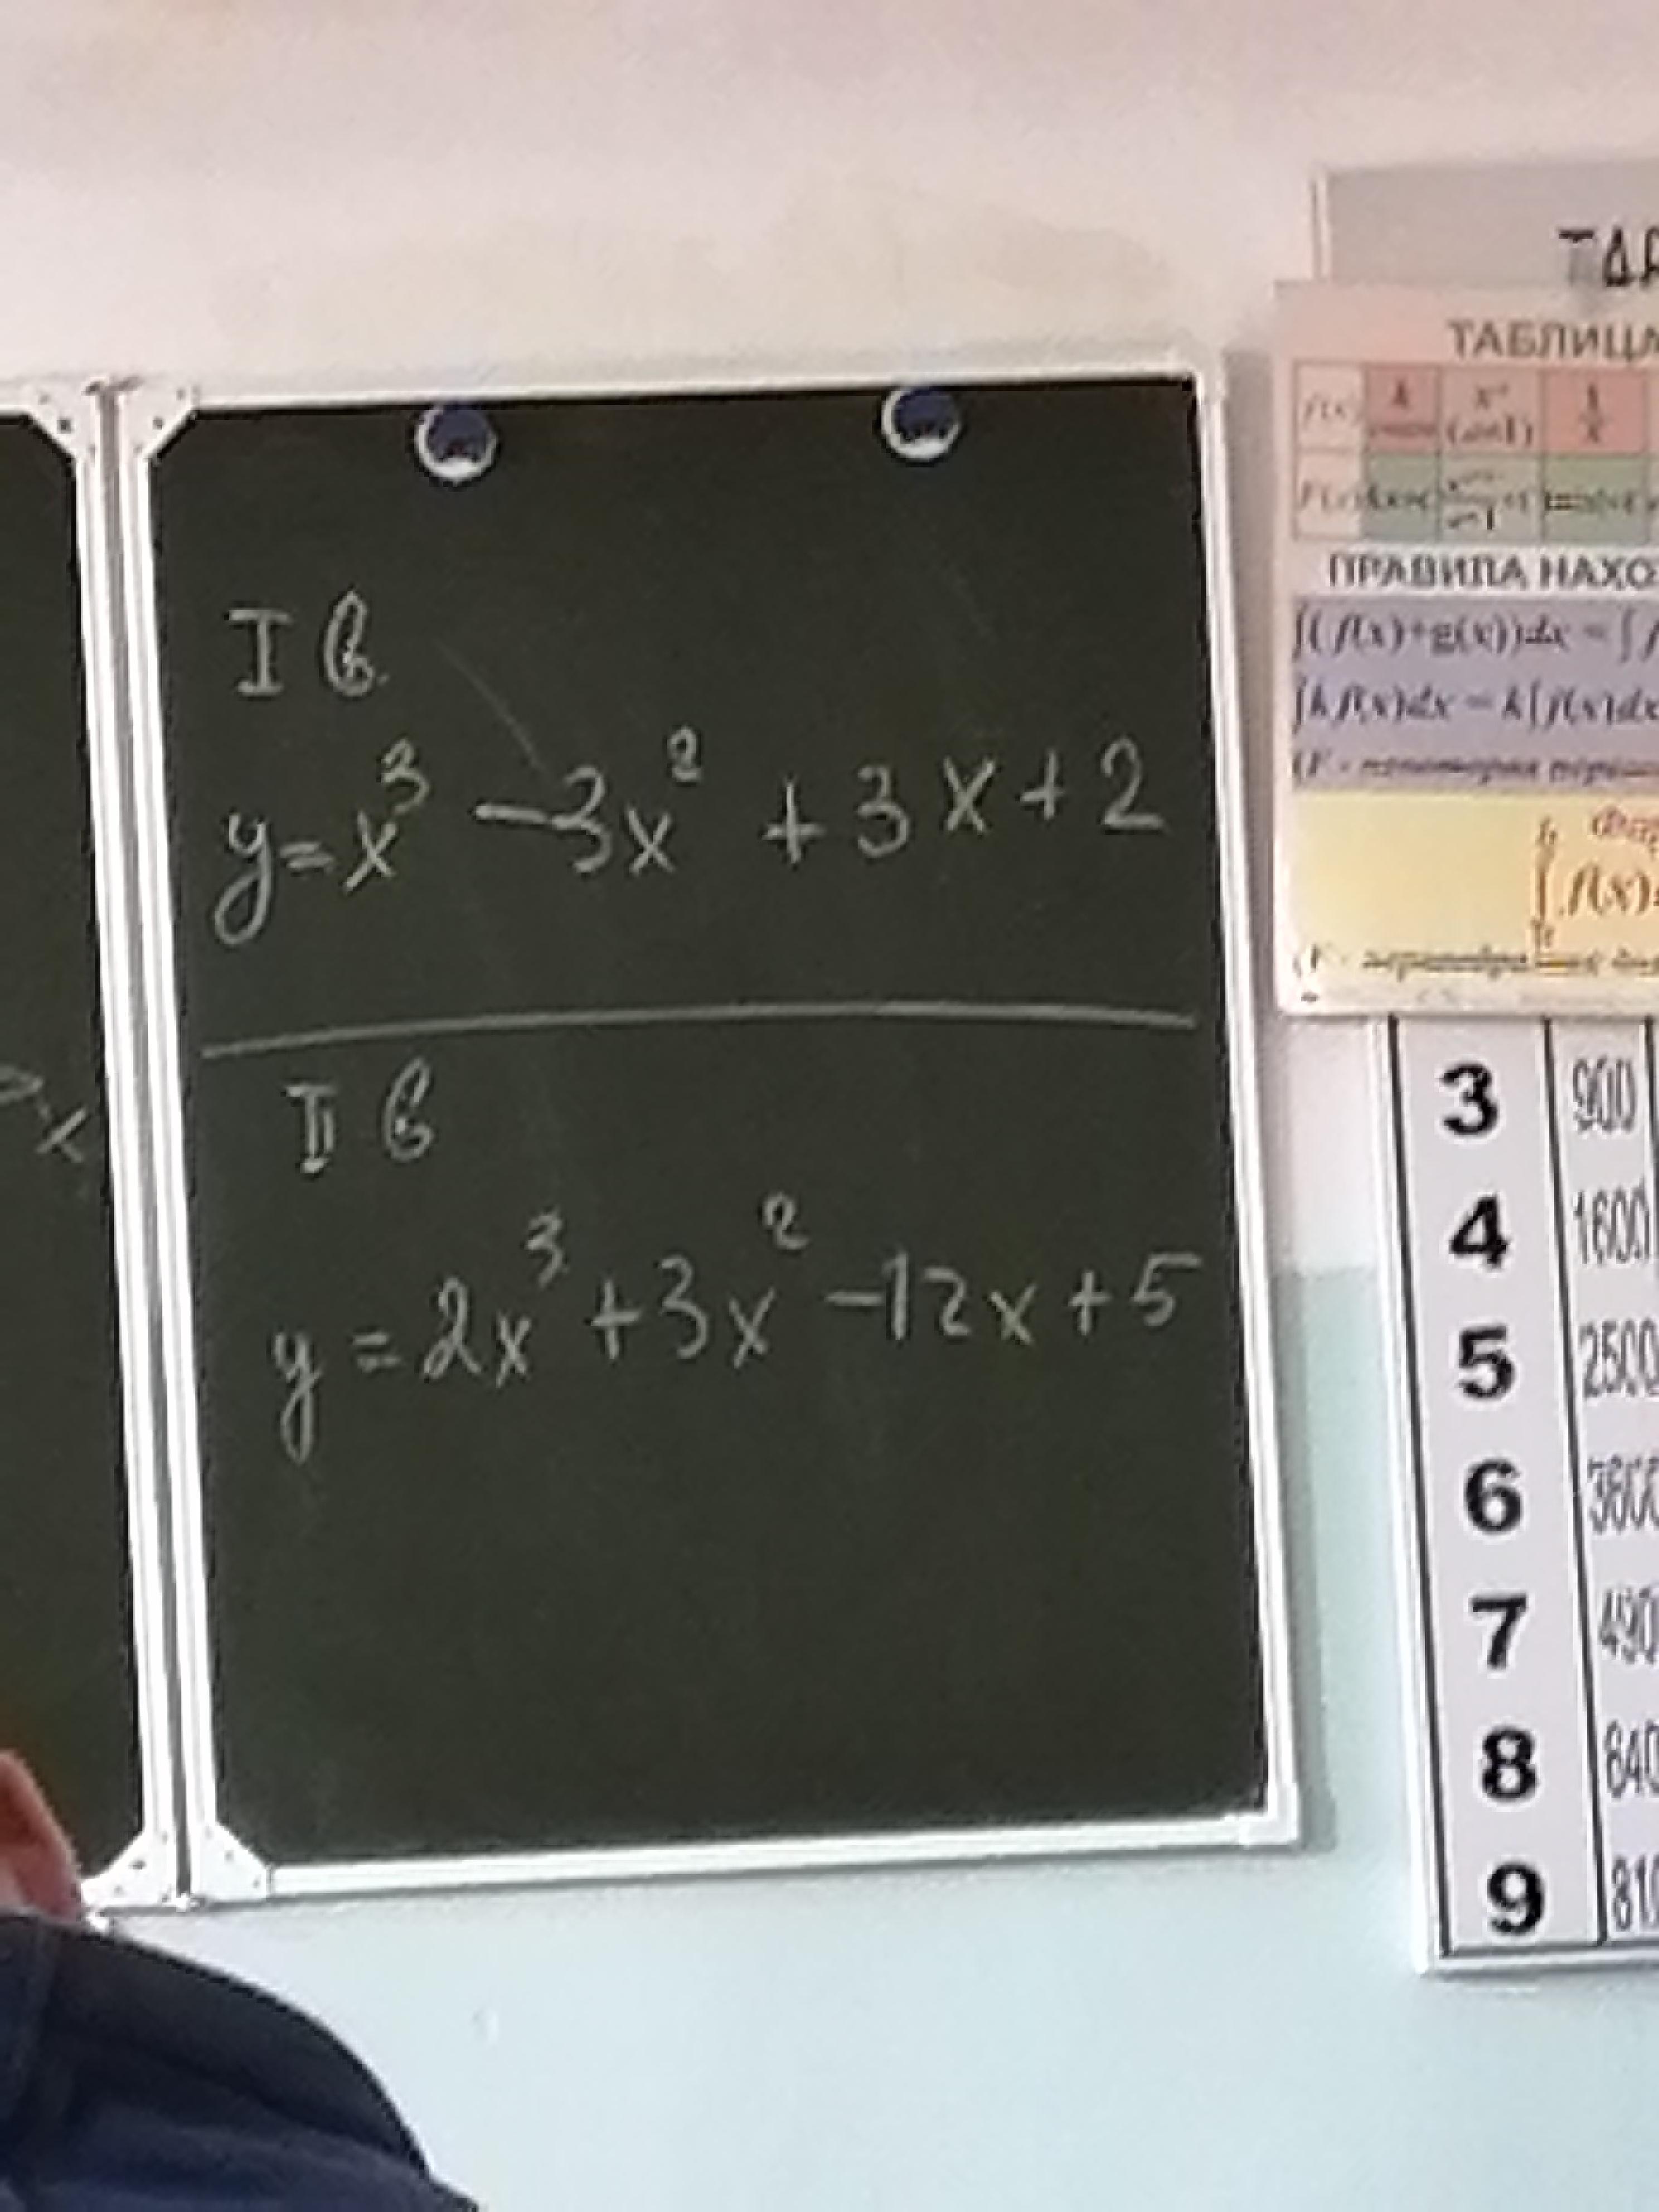 I в.
y = x³ - 3x² + 3x + 2
II в
y = 2x³ + 3x² - 12x + 5
x
ТАБЛИЦА
f(x) k 1/x
ПРАВИЛА НАХО
∫(f(x)+g(x))dx = ∫f
∫kf(x)dx = k∫f(x)dx
f(x)
3 900
4 1600
5 2500
6 3600
7 490
8 640
9 810